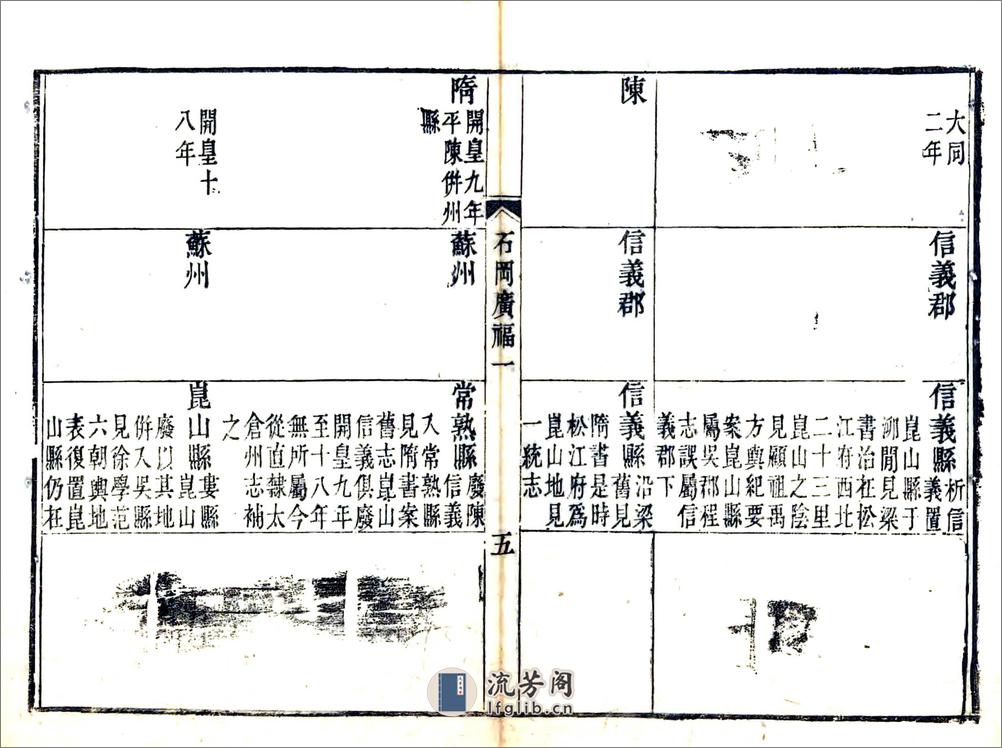 大同
二年
信義郡
信義縣
析信
義置
崑山縣于
泖閒見梁
書治在松
江府西北
二十三里
崑山之陰
見顧祖禹
方輿紀要
案崑山縣
屬吳郡程
志誤屬信
義郡下
陳
信義郡
信義縣
沿梁
舊見
隋書是時
松江府為
崑山地見
一統志
石岡廣福一
五
隋
開皇九年
平陳併州
縣
蘇州
常熟縣
廢陳
信義
入常熟縣
見隋書案
舊志崑山
信義俱廢
開皇九年
至十八年
無所屬今
從直隸太
倉州志補
之
開皇十
八年
蘇州
崑山縣
婁縣
崑山
廢以其地
併入吳縣
見徐學范
六朝輿地
表復置崑
山縣仍在
流芳阁
lfglib.cn